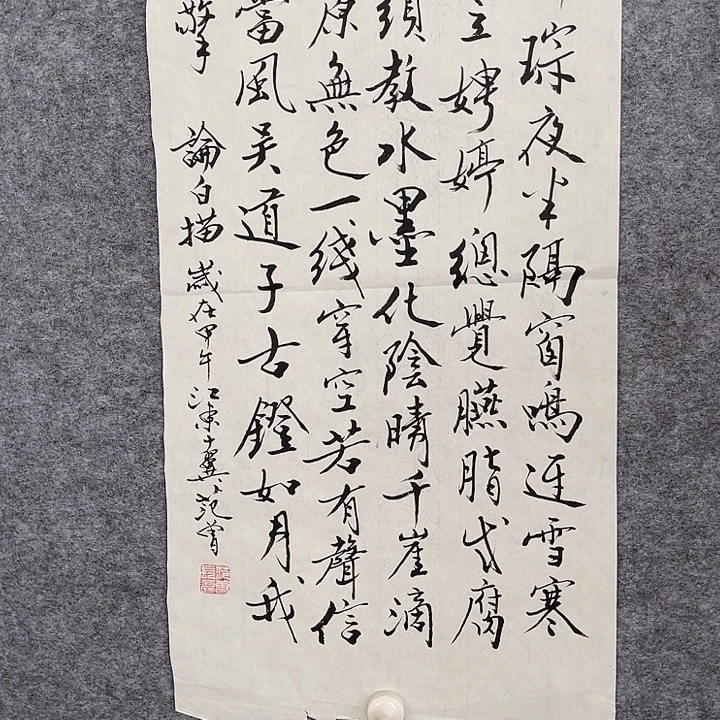 琮夜半隔窗鳴連雪寒
立娉婷總覺臙脂成腐
須教水墨化陰晴千崖滴
原無色一綫穿空若有聲信
當風吴道子古鐙如月我
擎
論白描 歲在甲午江東十翼范曾